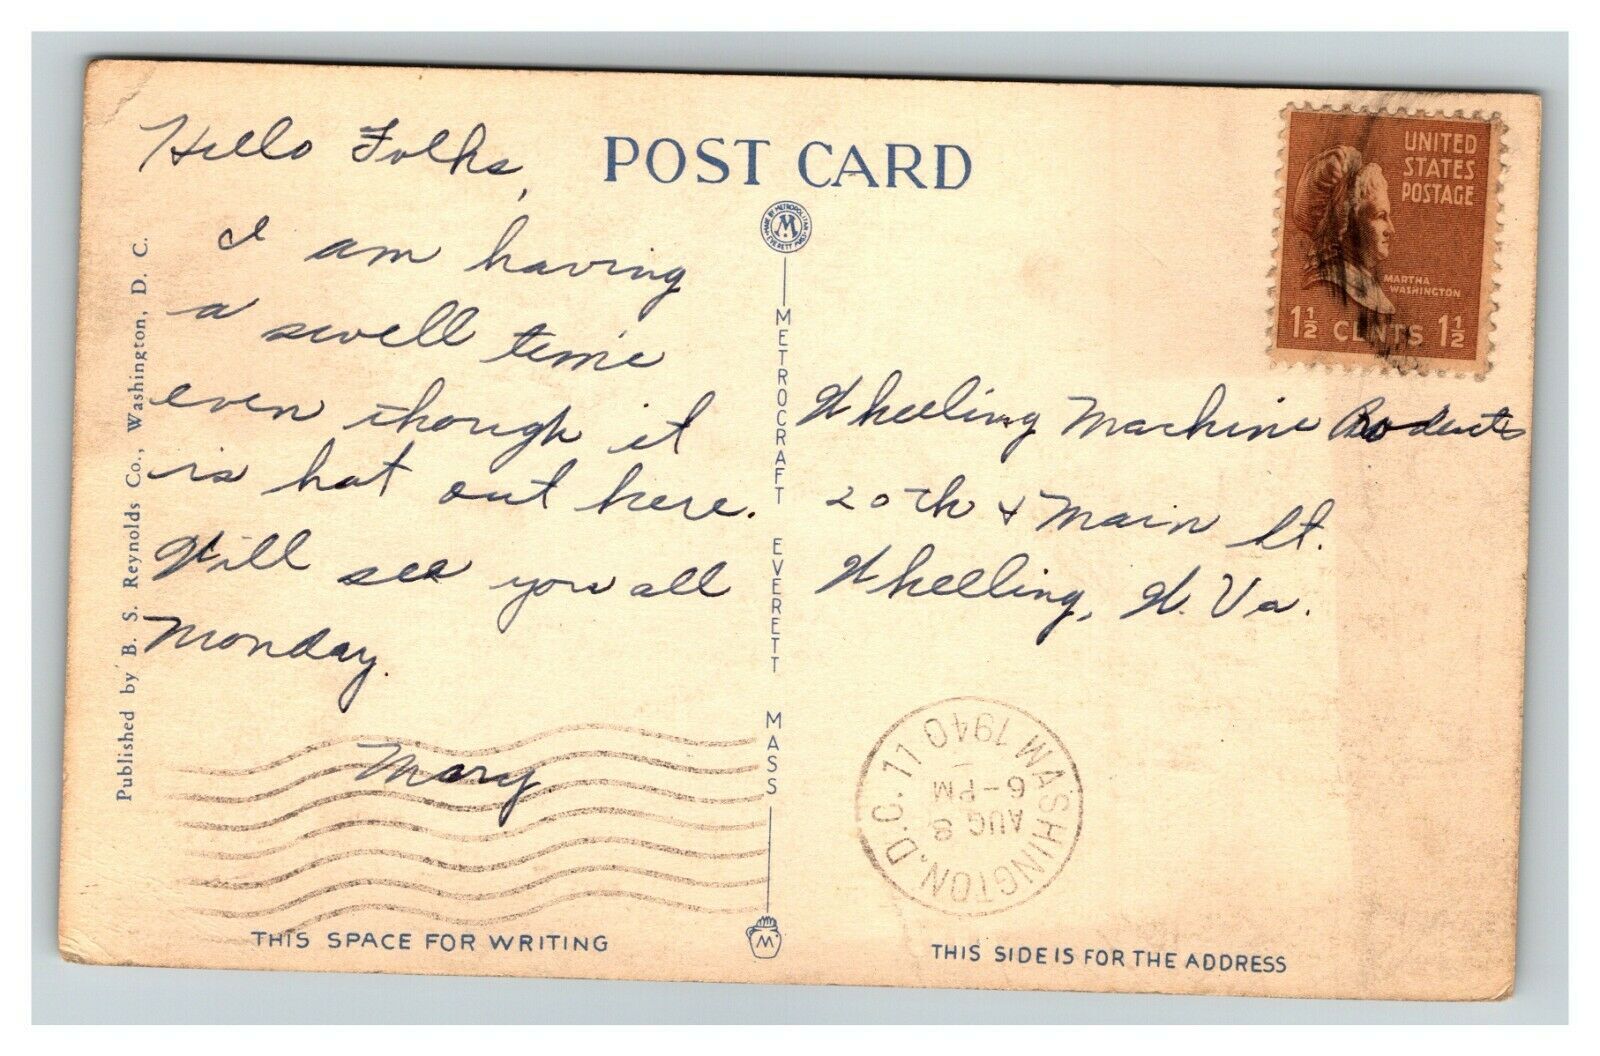 POST CARD
Hello Folks,
I am having
a swell time
even though it
is hot out here.
Will see you all
Monday.
Mary
Published by B. S. Reynolds Co., Washington, D. C.
THIS SPACE FOR WRITING
MADE BY METROPOLITAN
M
EVERETT MASS
METROCRAFT EVERETT MASS
M
UNITED
STATES
POSTAGE
MARTHA
WASHINGTON
1½ CENTS 1½
Wheeling Machine Products
20th & Main St.
Wheeling, W. Va.
WASHINGTON, D.C. 11
AUG 8
6-PM
1940
THIS SIDE IS FOR THE ADDRESS